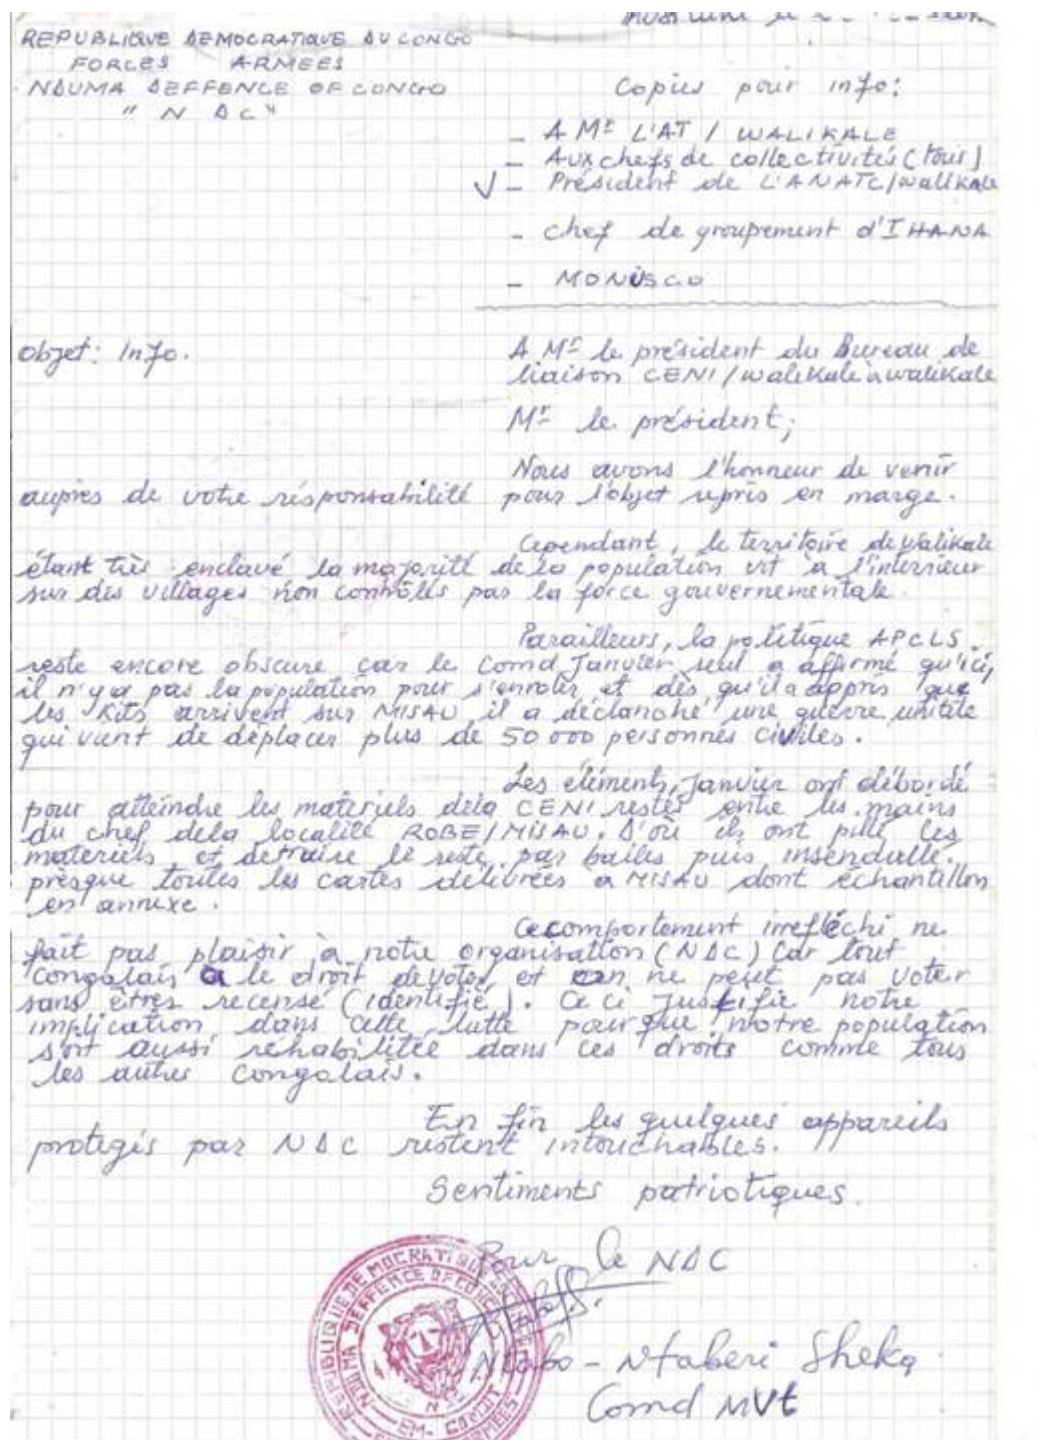 REPUBLIQUE DEMOCRATIQUE DU CONGO
FORCES ARMEES
NDUMA DEFFENCE OF CONGO
"NDC"
Copies pour info:
- A Mr L'AT / WALIKALE
- Aux chefs de collectivités (tous)
✓ - Président de L'ANATC/walikale
- chef de groupement d'IHANA
- MONUSCO
objet: Info.
A Mr le président du Bureau de
liaison CENI/walikale à walikale
Mr le président;
Nous avons l'honneur de venir
auprès de votre résponsabilité pour l'objet repris en marge.
Cependant, le territoire de walikale
étant très enclavé la majorité de la population vit à l'interieur
sur des villages non contrôlés par la force gouvernementale.
Parailleurs, la politique APCLS.
reste encore obscure car le Comd Janvier seul a affirmé qu'ici,
il n'y a pas la population pour s'enroler et dès qu'il a appris que
les Kits arrivent sur MISAU il a déclanché une guerre
qui vient de déplacer plus de 50 000 personnes civiles.
Les éléments Janvier ont débordé
pour atteindre les materiels dela CENI restés entre les mains
du chef dela localité ROBE/MISAU. D'où ils ont pillé ces
materiels et detruire le reste par balles puis
presque toutes les cartes délivrées à MISAU dont échantillon
en annexe.
Ce comportement irrefléchi ne
fait pas plaisir à notre organisation (NDC) Car tout
congolais a le droit de voter et on ne peut pas voter
sans êtres recensé (identifié). Ce ci justifie notre
implication dans cette lutte pour que notre population
soit aussi réhabilitée dans ces droits comme tous
les autres congolais.
En fin les quelques appareils
protegés par NDC restent intouchables.
Sentiments patriotiques.
Pour le NDC
Ntabo - Ntaberi Sheka
Comd MVt
REPUBLIQUE DEMOCRATIQUE
NDUMA DEFFENCE OF CONGO